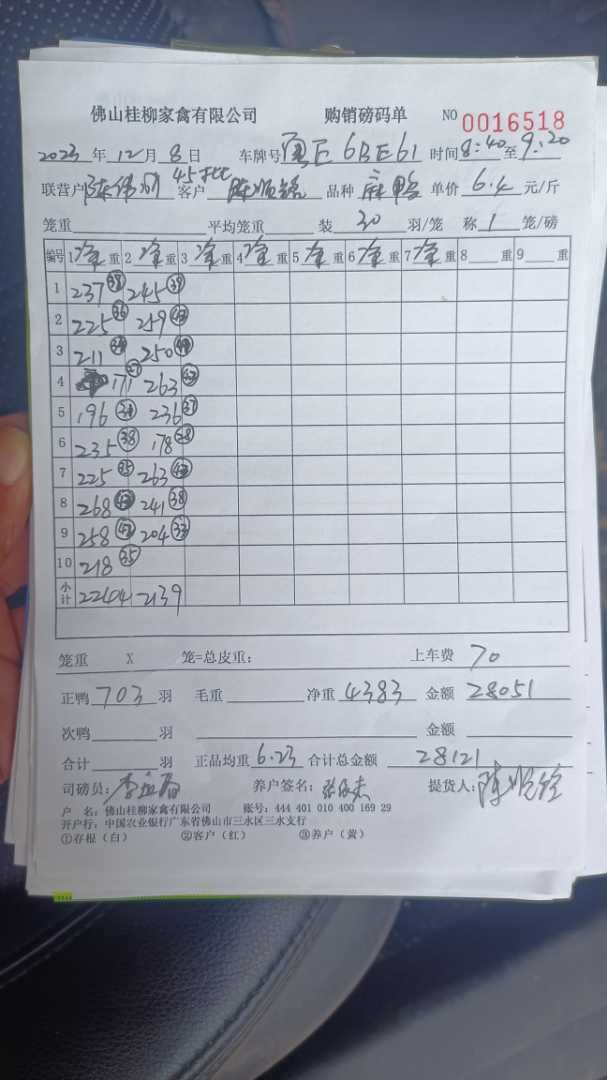 佛山桂柳家禽有限公司 购销磅码单 NO 0016518
2023 年 12 月 8 日 车牌号 E 6BE61 时间 8:40 至 9:20
联营户 45批 客户 陈顺 品种 麻鸭 单价 6.4 元/斤
笼重 平均笼重 装 30 羽/笼 称 1 笼/磅
编号 1 净重 2 净重 3 净重 4 净重 5 净重 6 净重 7 净重 8 重 9 重
1 237 38 245 39
2 225 36 259
3 211 250
4 171 263
5 196 236 37
6 235 38 178 28
7 225 35 263
8 268 241 38
9 258 204 33
10 218 35
小计 2244 2139
笼重 X 笼=总皮重: 上车费 70
正鸭 703 羽 毛重 净重 4383 金额 28051
次鸭 羽 金额
合计 羽 正品均重 6.23 合计总金额 28121
司磅员: 李 养户签名: 张 提货人: 陈顺
户 名: 佛山桂柳家禽有限公司 账号: 444 401 010 400 169 29
开户行: 中国农业银行广东省佛山市三水区三水支行
①存根(白) ②客户(红) ③养户(黄)